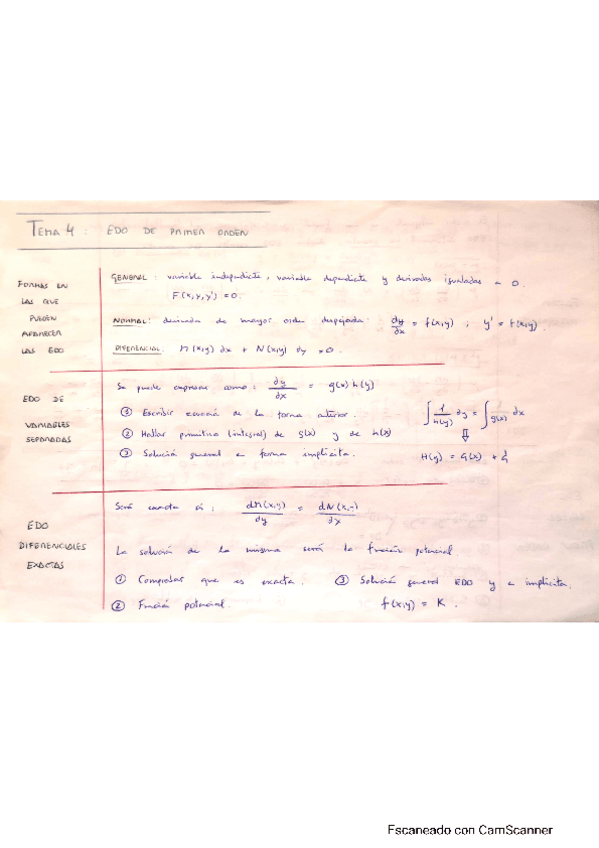 TEMA 4 : EDO DE PRIMER ORDEN
FORMAS EN
LAS QUE
PUEDEN
APARECER
LAS EDO
GENERAL : variable independiente, variable dependiente y derivadas igualadas a 0.
F(x,y,y') = 0.
NORMAL : derivada de mayor orden despejada : dy/dx = f(x,y) ; y' = f(x,y)
DIFERENCIAL : M(x,y) dx + N(x,y) dy = 0.
EDO DE
VARIABLES
SEPARADAS
Se puede expresar como : dy/dx = g(x) h(y)
① Escribir ecuación de la forma anterior.
② Hallar primitiva (integral) de g(x) y de h(x)
③ Solución general en forma implícita.
∫ 1/h(y) dy = ∫ g(x) dx
⇓
H(y) = G(x) +
EDO
DIFERENCIALES
EXACTAS
Será exacta si : dM(x,y)/dy = dN(x,y)/dx
La solución de la misma será la función potencial
① Comprobar que es exacta.
② Función potencial.
③ Solución general EDO y en implícita.
f(x,y) = K.
Escaneado con CamScanner